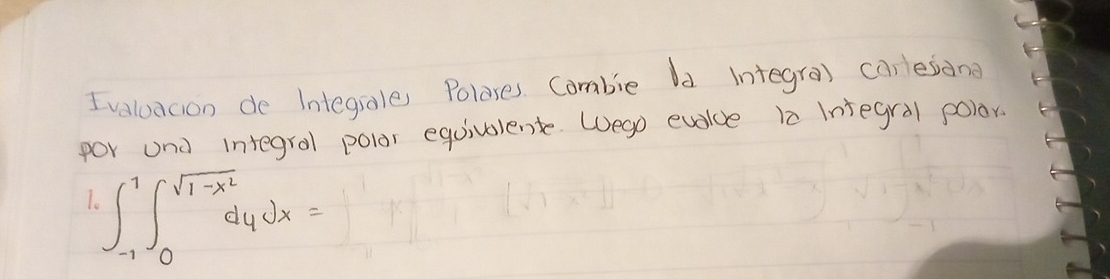 Evaluación de Integrales Polares Cambie la Integral cartesiana
por una integral polar equivalente. Luego evalúe la Integral polar.
1. ∫_{-1}^{1} ∫_{0}^{√(1-x²)} dy dx =